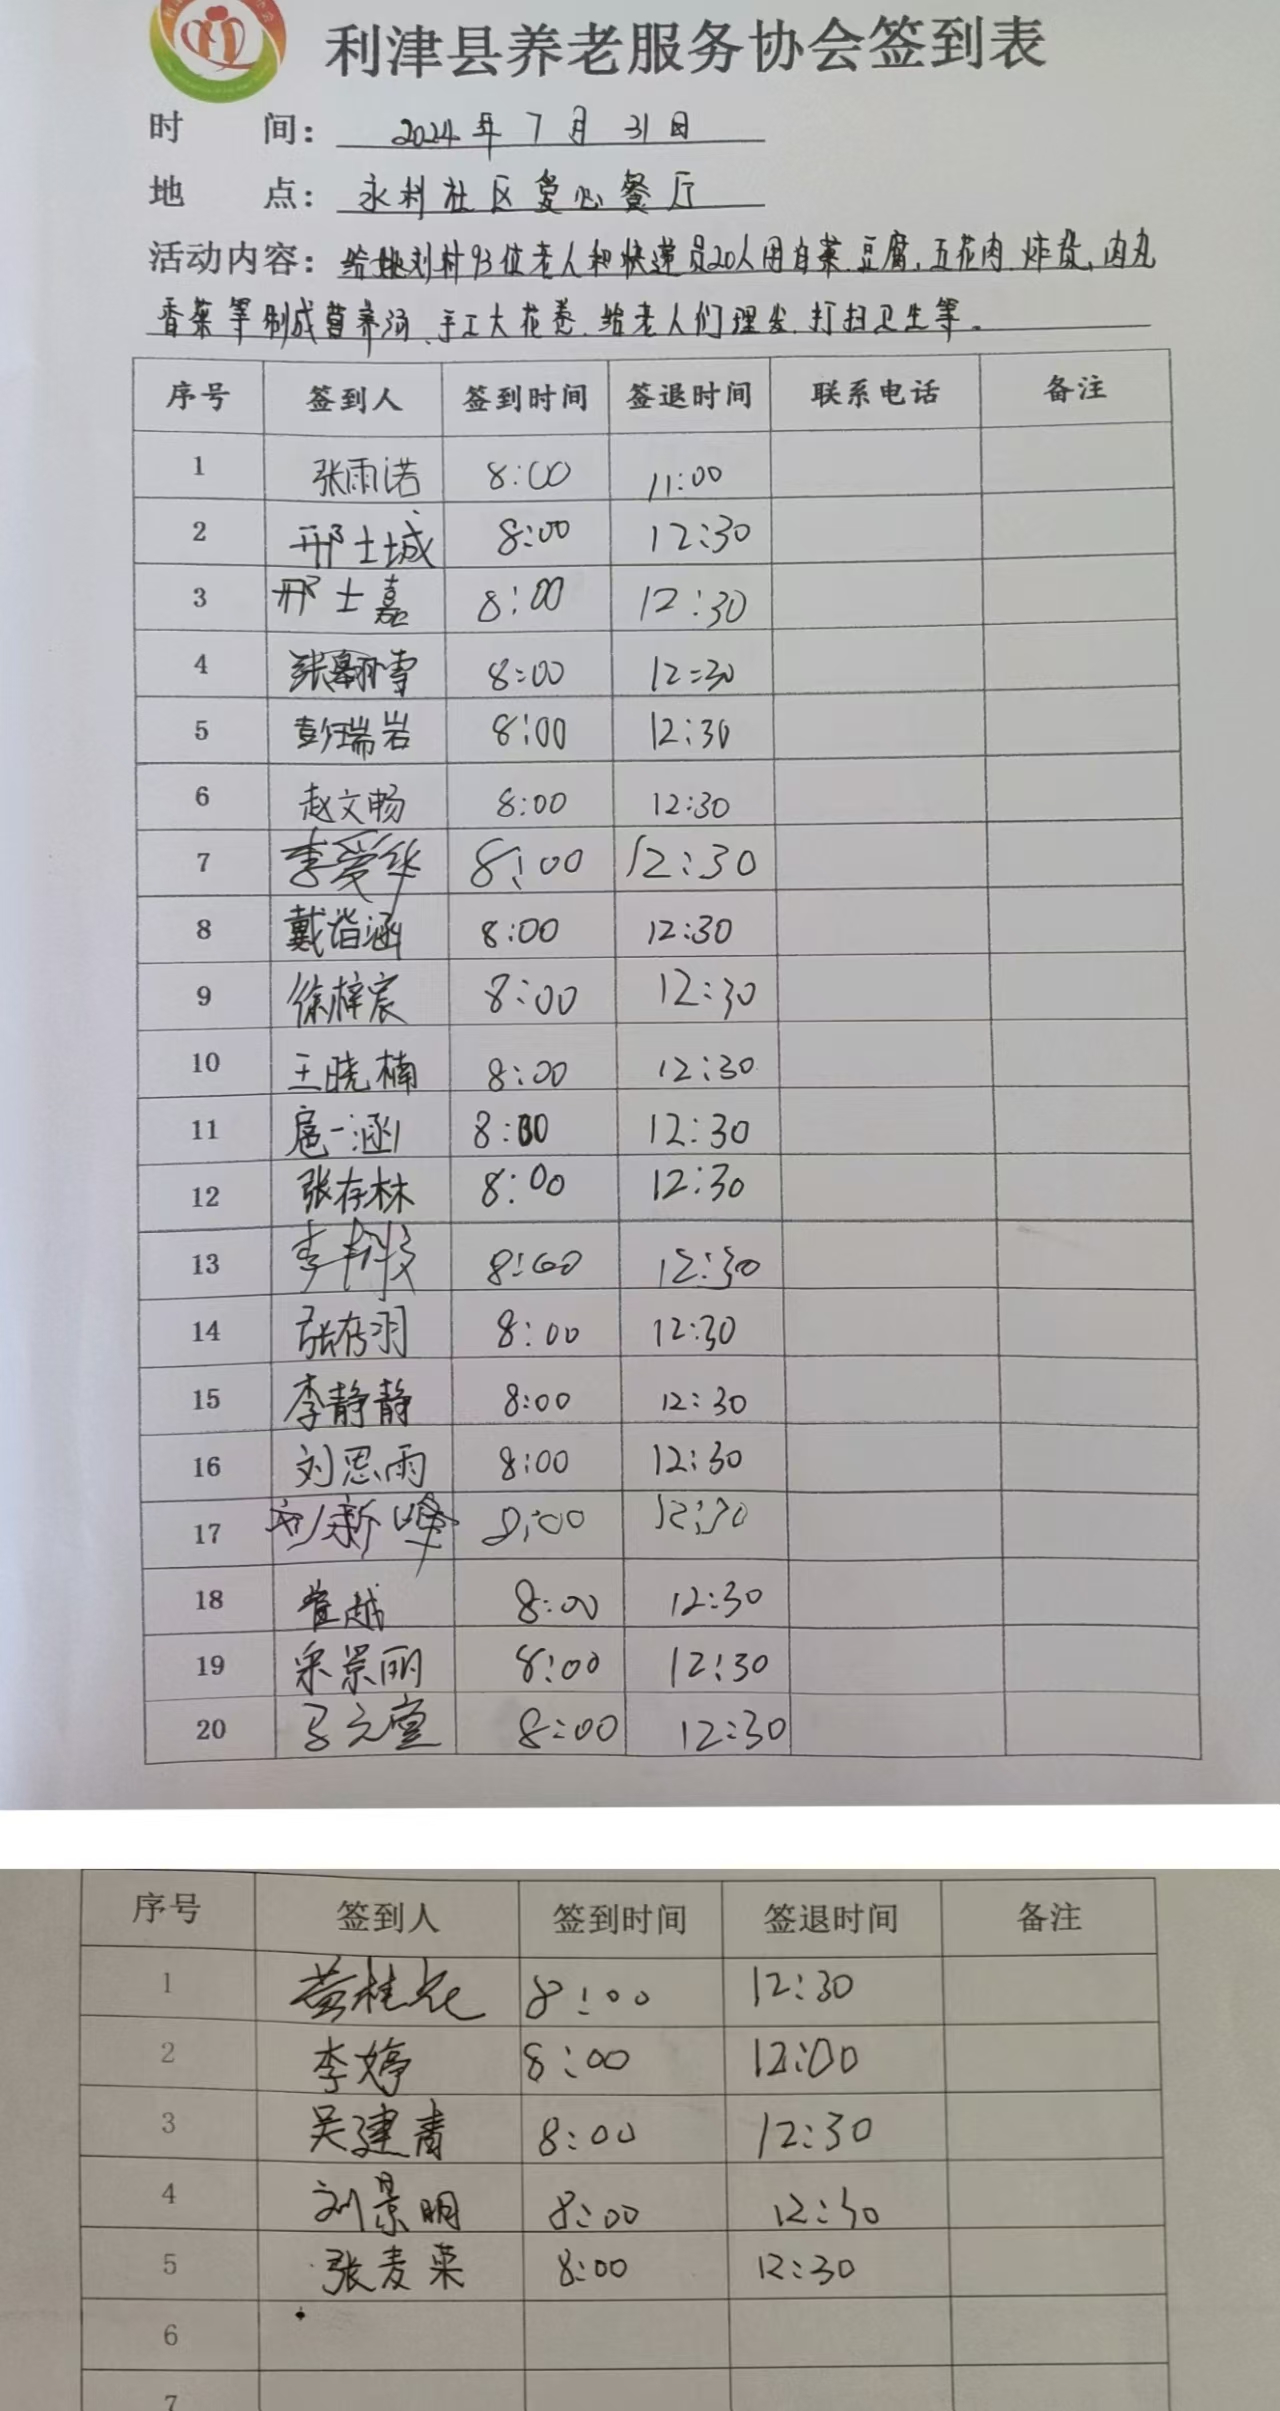 利津县养老服务协会签到表
时 间: 2024年7月31日
地 点: 永利社区爱心餐厅
活动内容: 给 刘村93位老人和快递员20人用白菜、豆腐、五花肉、炸货、肉丸
香菜等制成营养汤、手工大花卷、给老人们理发、打扫卫生等。
序号 签到人 签到时间 签退时间 联系电话 备注
1 张雨诺 8:00 11:00
2 邢士城 8:00 12:30
3 邢士嘉 8:00 12:30
4 张翻雪 8:00 12:30
5 彭瑞岩 8:00 12:30
6 赵文畅 8:00 12:30
7 李爱华 8:00 12:30
8 戴谐涵 8:00 12:30
9 徐梓宸 8:00 12:30
10 王晓楠 8:00 12:30
11 扈一涵 8:00 12:30
12 张存林 8:00 12:30
13 李 8:00 12:30
14 张存羽 8:00 12:30
15 李静静 8:00 12:30
16 刘思雨 8:00 12:30
17 刘新峰 8:00 12:30
18 崔越 8:00 12:30
19 宋景丽 8:00 12:30
20 8:00 12:30
序号 签到人 签到时间 签退时间 备注
1 黄桂花 8:00 12:30
2 李婷 8:00 12:00
3 吴建青 8:00 12:30
4 刘景明 8:00 12:30
5 张麦菜 8:00 12:30
6
7